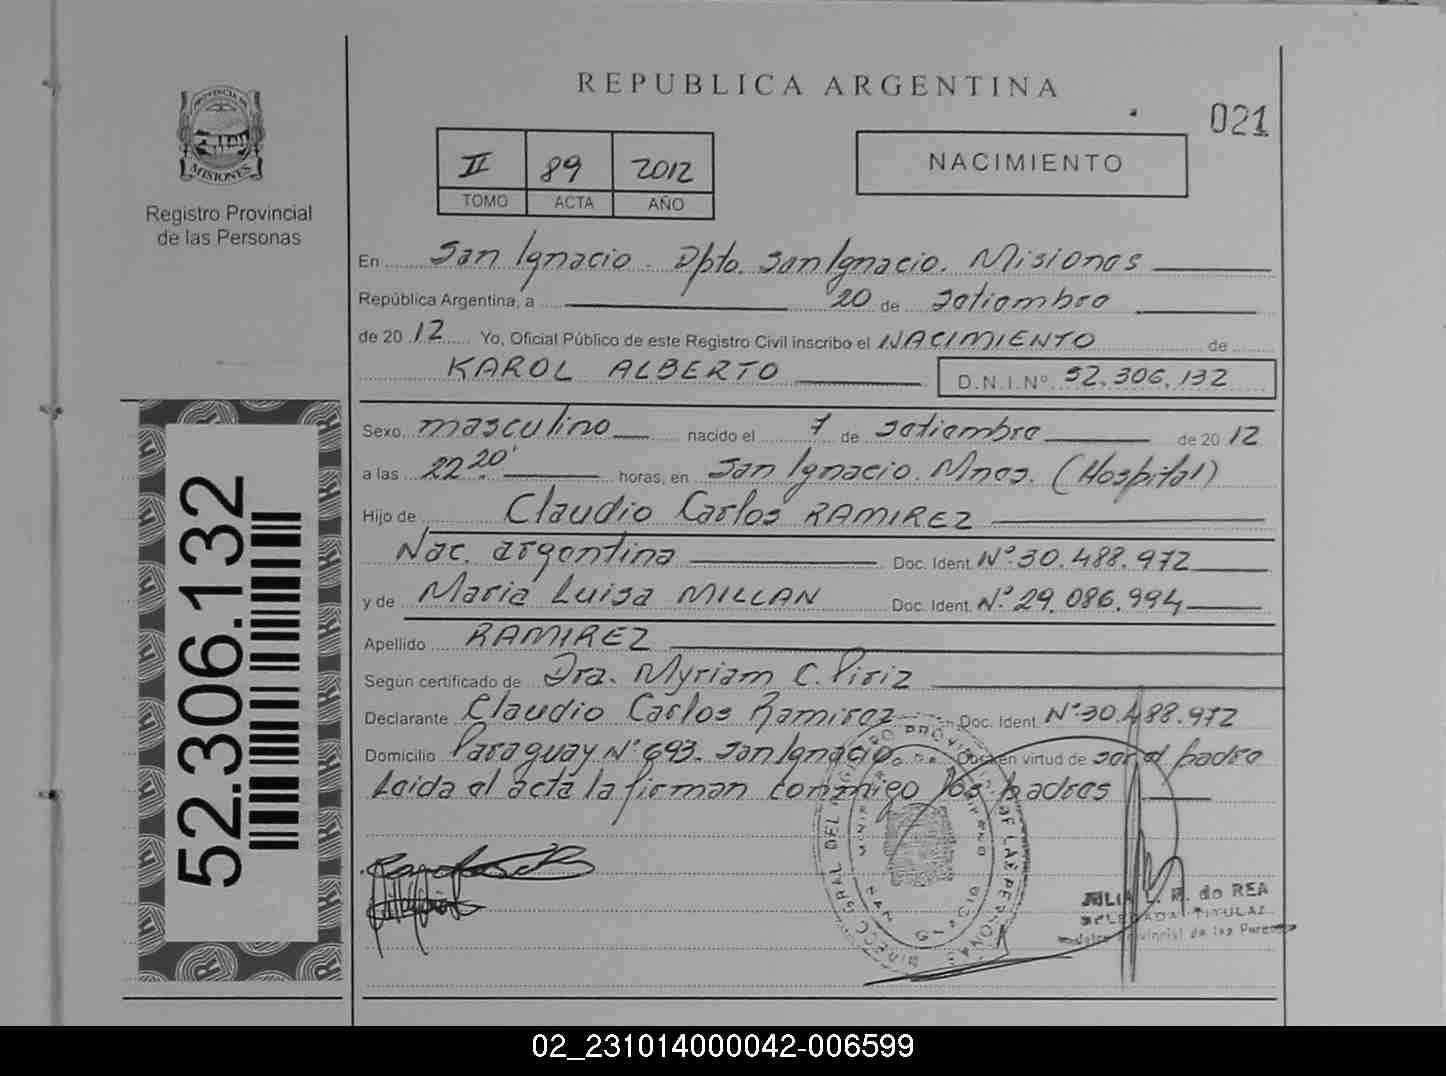 REPUBLICA ARGENTINA
021
PROVINCIA DE
MISIONES
Registro Provincial
de las Personas
II 89 2012
TOMO ACTA AÑO
NACIMIENTO
En San Ignacio. Dpto. San Ignacio. Misiones
República Argentina, a 20 de setiembre
de 2012 Yo, Oficial Público de este Registro Civil inscribo el NACIMIENTO de
KAROL ALBERTO D.N.I.Nº 52.306.132
Sexo masculino nacido el 7 de setiembre de 2012
a las 22.20' horas, en San Ignacio. Mnes. (Hospital)
Hijo de Claudio Carlos RAMIREZ
Nac. argentina Doc. Ident. Nº 30.488.972
y de Maria Luisa MILLAN Doc. Ident. Nº 29.086.994
Apellido RAMIREZ
Según certificado de Dra. Myriam C. Piriz
Declarante Claudio Carlos Ramirez Doc. Ident. Nº 30.488.972
Domicilio Paraguay Nº 693. San Ignacio en virtud de ser el padre
Leida el acta la firman conmigo los padres
52.306.132
SAN IGNACIO
R. do REA
02_231014000042-006599